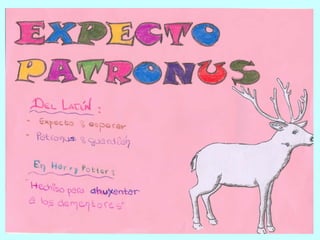 EXPECTO
PATRONUS
DEL LATÍN:
- Expecto : esperar
- Patronus : guardián
En Harry Potter:
"Hechizo para ahuyentar
a los dementores"